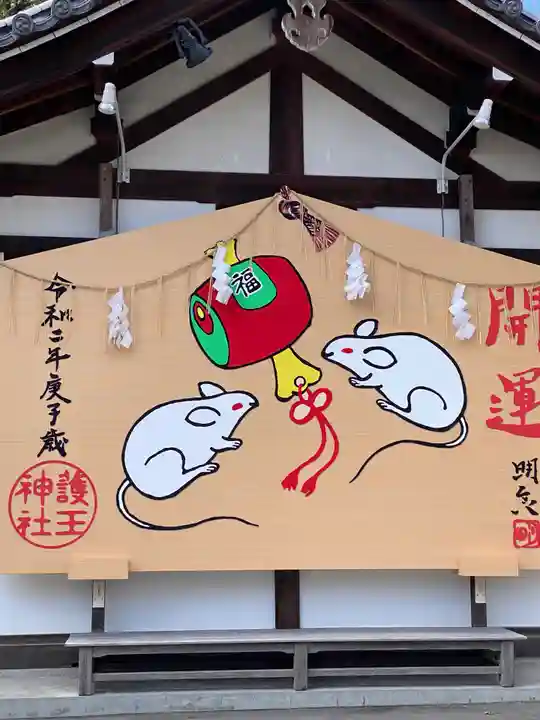 開運
明灸
福
令和二年庚子歳
護王
神社